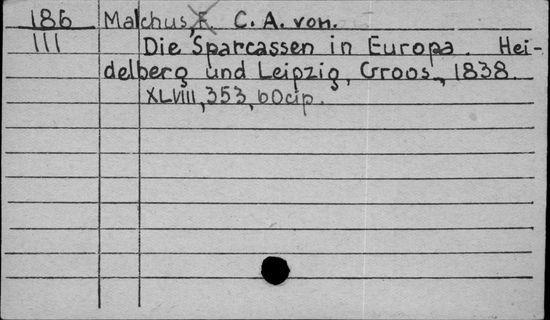 186 Malchus, C. A. von.
III Die Sparcassen in Europa. Hei-
delberg und Leipzig, Groos, 1838.
XLVIII, 353, 60